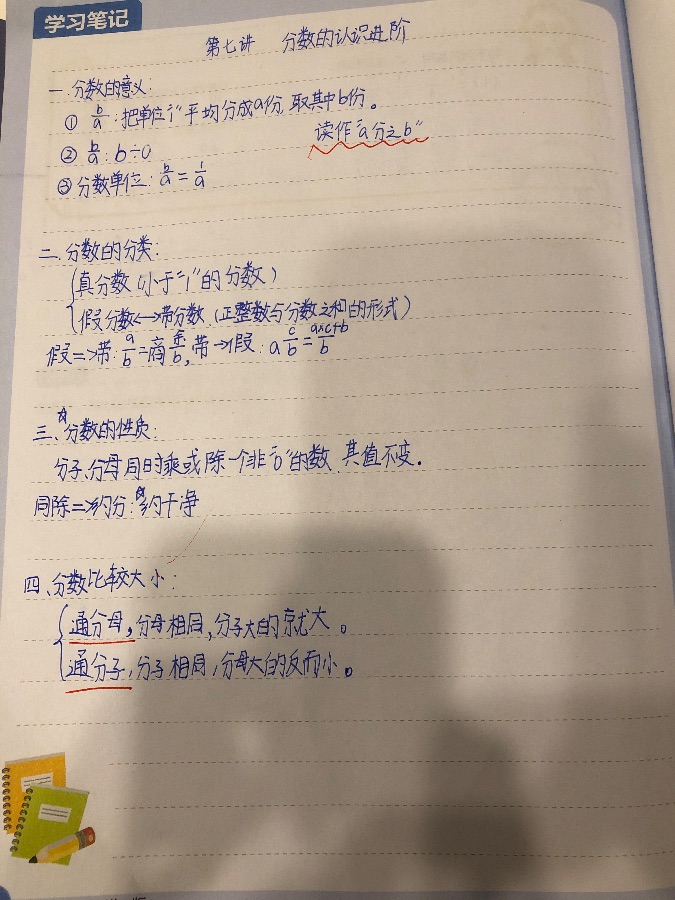 学习笔记
第七讲 分数的认识进阶
一.分数的意义:
① b/a:把单位"1"平均分成a份,取其中b份。
读作"a分之b"
② b/a:b÷a
③ 分数单位:b/a=1/a
二.分数的分类:
真分数(小于"1"的分数)
假分数<->带分数(正整数与分数之和的形式)
假=>带:a/b=商余/b,带->假:a c/b=a×c+b/b
三、☆分数的性质:
分子、分母同时乘或除一个非"0"的数,其值不变.
同除=>约分:☆约干净
四、分数比较大小:
通分母,分母相同,分子大的就大。
通分子,分子相同,分母大的反而小。